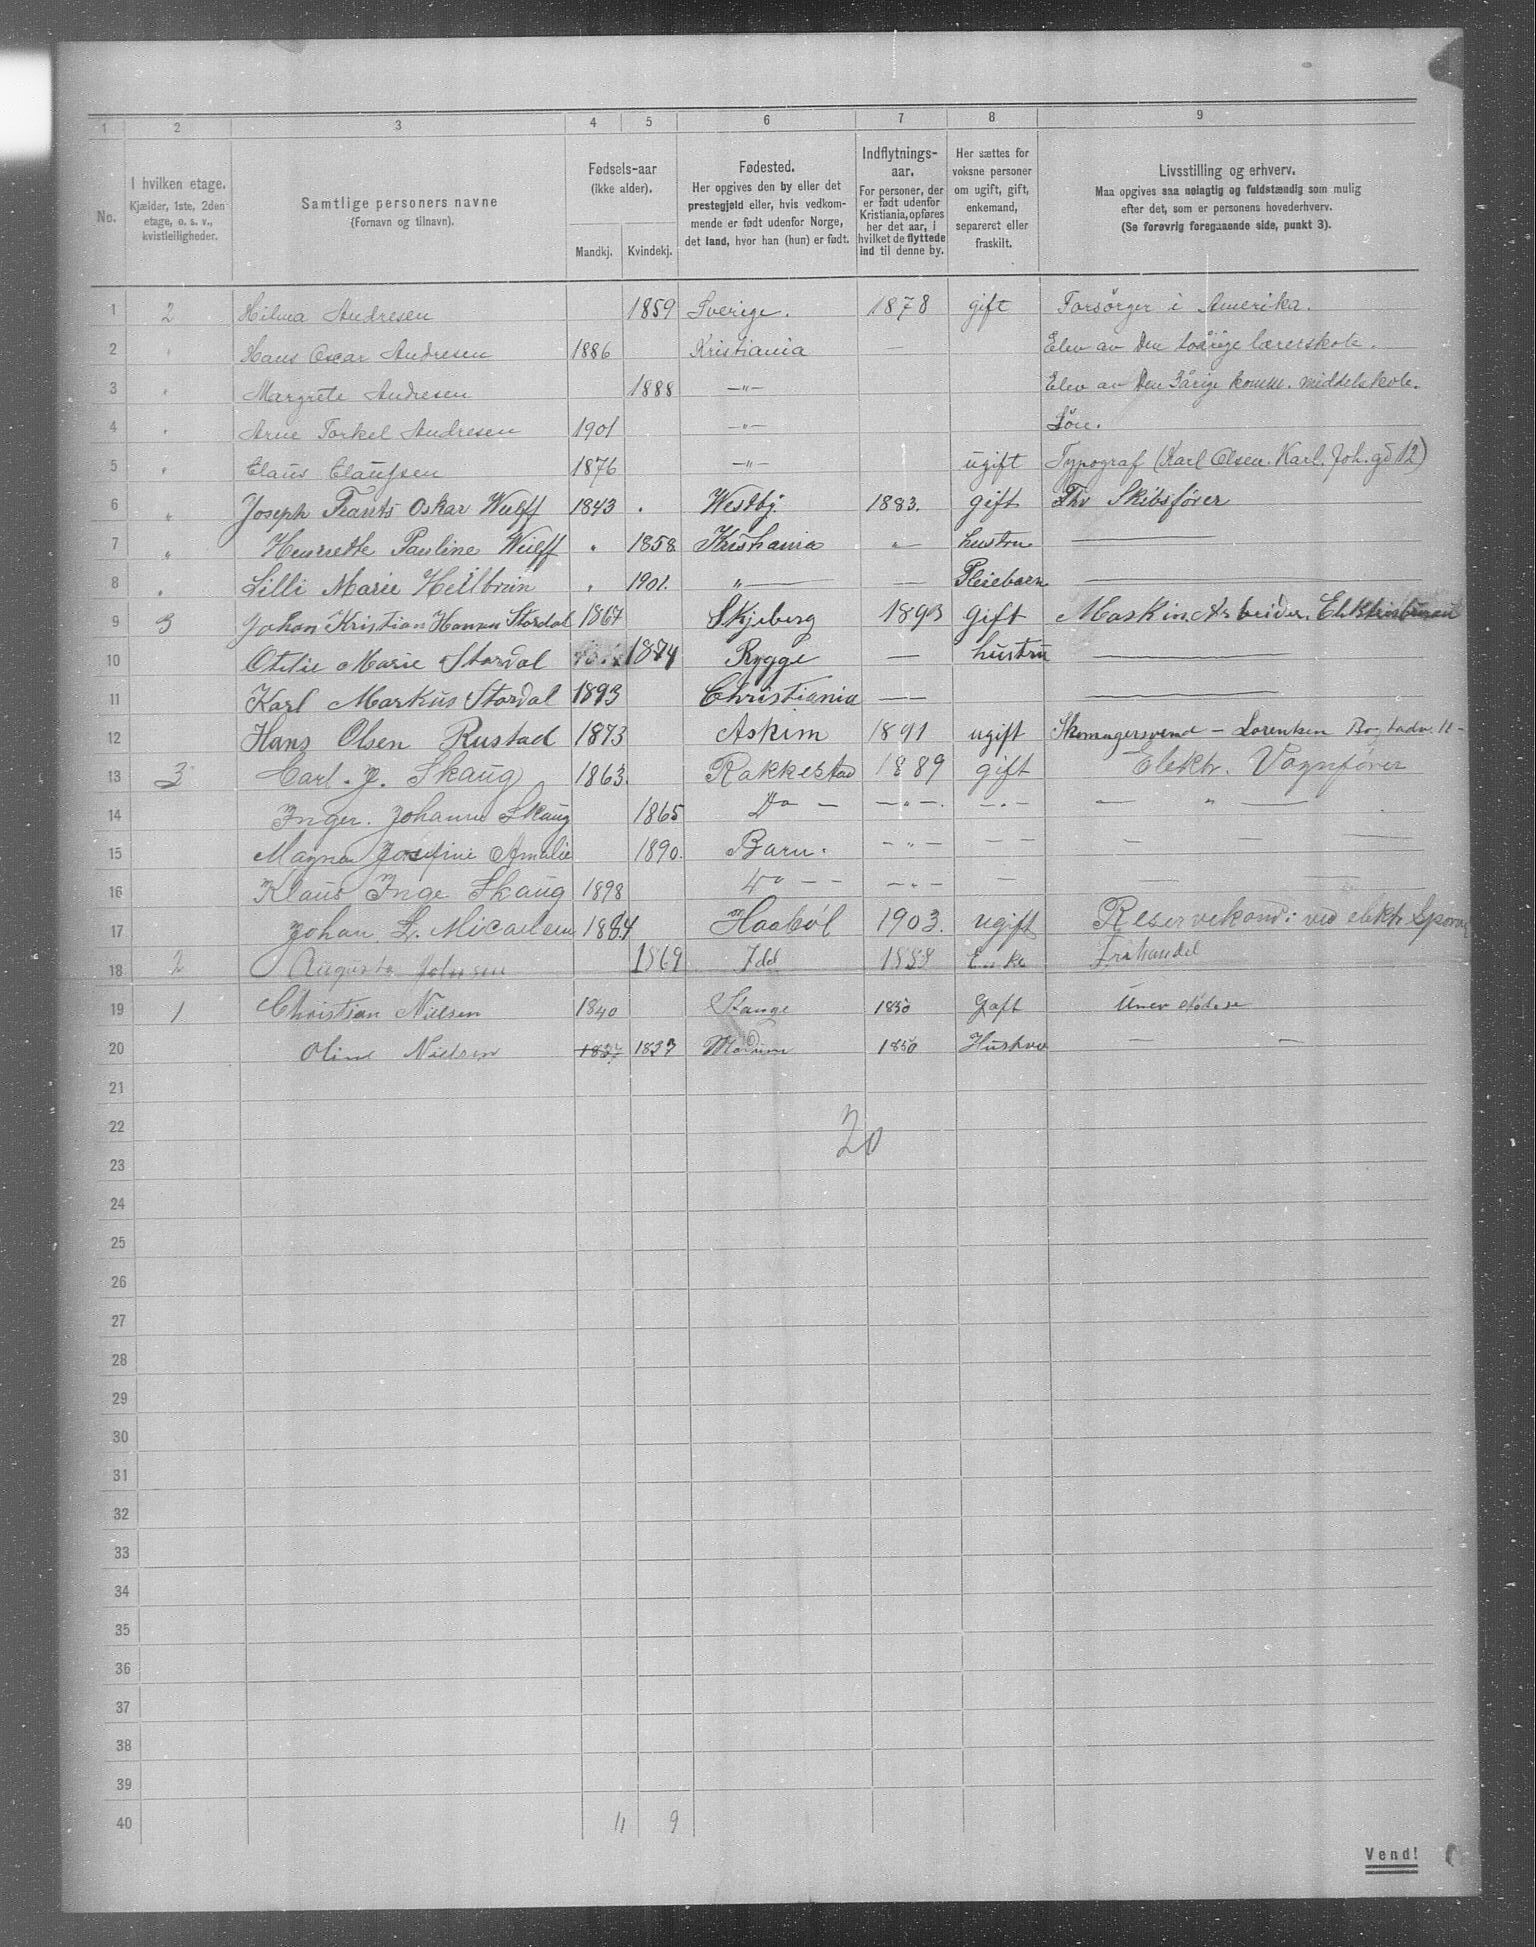 1 2 3 4 5 6 7 8 9
No.
I hvilken etage.
Kjælder, 1ste, 2den
etage, o. s. v.,
kvistleiligheder.
Samtlige personers navne
(Fornavn og tilnavn).
Fødsels-aar
(ikke alder).
Mandkj. Kvindekj.
Fødested.
Her opgives den by eller det
prestegjeld eller, hvis vedkom-
mende er født udenfor Norge,
det land, hvor han (hun) er født.
Indflytnings-
aar.
For personer, der
er født udenfor
Kristiania, opføres
her det aar, i
hvilket de flyttede
ind til denne by.
Her sættes for
voksne personer
om ugift, gift,
enkemand,
separeret eller
fraskilt.
Livsstilling og erhverv.
Maa opgives saa nøiagtig og fuldstændig som mulig
efter det, som er personens hovederhverv.
(Se forøvrig foregaaende side, punkt 3).
1 2 Hilma Andresen 1859 Sverige. 1878 gift Forsörger i Amerika.
2 " Hans Oscar Andresen 1886 Kristiania — Elev av Den lærerskole.
3 " Margrete Andresen 1888 —"— Elev av Den 3årige komm. middelskole.
4 " Arne Torkel Andresen 1901 —"— Sön.
5 " Claus Claussen 1876 —"— ugift Typograf (Karl Olsen. Karl. Joh. gd 12)
6 " Joseph Frants Oskar Wulff 1843 . Westby 1883. gift Fhv Skibsfører
7 " Henriette Pauline Wulff " 1858 Kristiania —"— hustru ———
8 " Lilli Marie Heilbrun " 1901. "——— — Pleiebarn ———
9 3 Johan Kristian Hansen Stordal 1867 Skjeberg 1893 Gift Maskin Arbeider.
10 Otilie Marie Stordal 1874 Rygge — hustru ———
11 Karl Markus Stordal 1893 Christiania —— ———
12 Hans Olsen Rustad 1873 Askim 1891 ugift Skomagersvend – Lorentzen
13 3 Carl. J. Skaug 1863. Rakkestad 1889 gift Elektr. Vognfører
14 Inger. Johanne Skaug 1865 Do — —"—. —"— — " —
15 Magna Josefine Amalie 1890. Barn. — "— — — — — —
16 Klaus Inge Skaug 1898 Do — — —"— — — —
17 Johan. L. Micaelsen 1884 Haabøl 1903. ugift Reservekond: ved elektr Sporv
18 2 Augusta Johnsen 1869 Idd 1888 Enke
19 1 Christian Nielsen 1840 Stange 1850 Gift
20 Oline Nielsen 1837 1837 Modum 1850 Hustru — —
21
22
20
23
24
25
26
27
28
29
30
31
32
33
34
35
36
37
38
39
40 11 9
Vend!